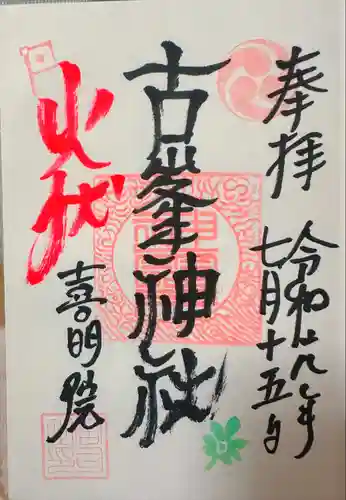 奉拝
令和年
七月十五日
古峯神社
火伏
喜明院